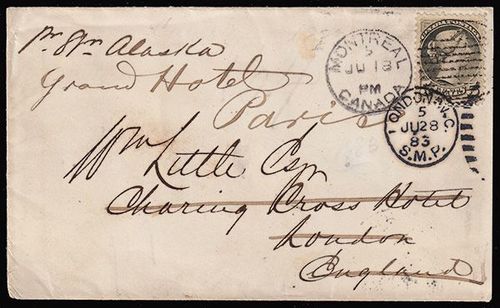 pr Str Alaska
Grand Hotel
Paris
Wm Little Esqr
Charing Cross Hotel
London
England
MONTREAL
5
JU 18
PM
CANADA
LONDON W.C
5
JU28
83
S.M.P.